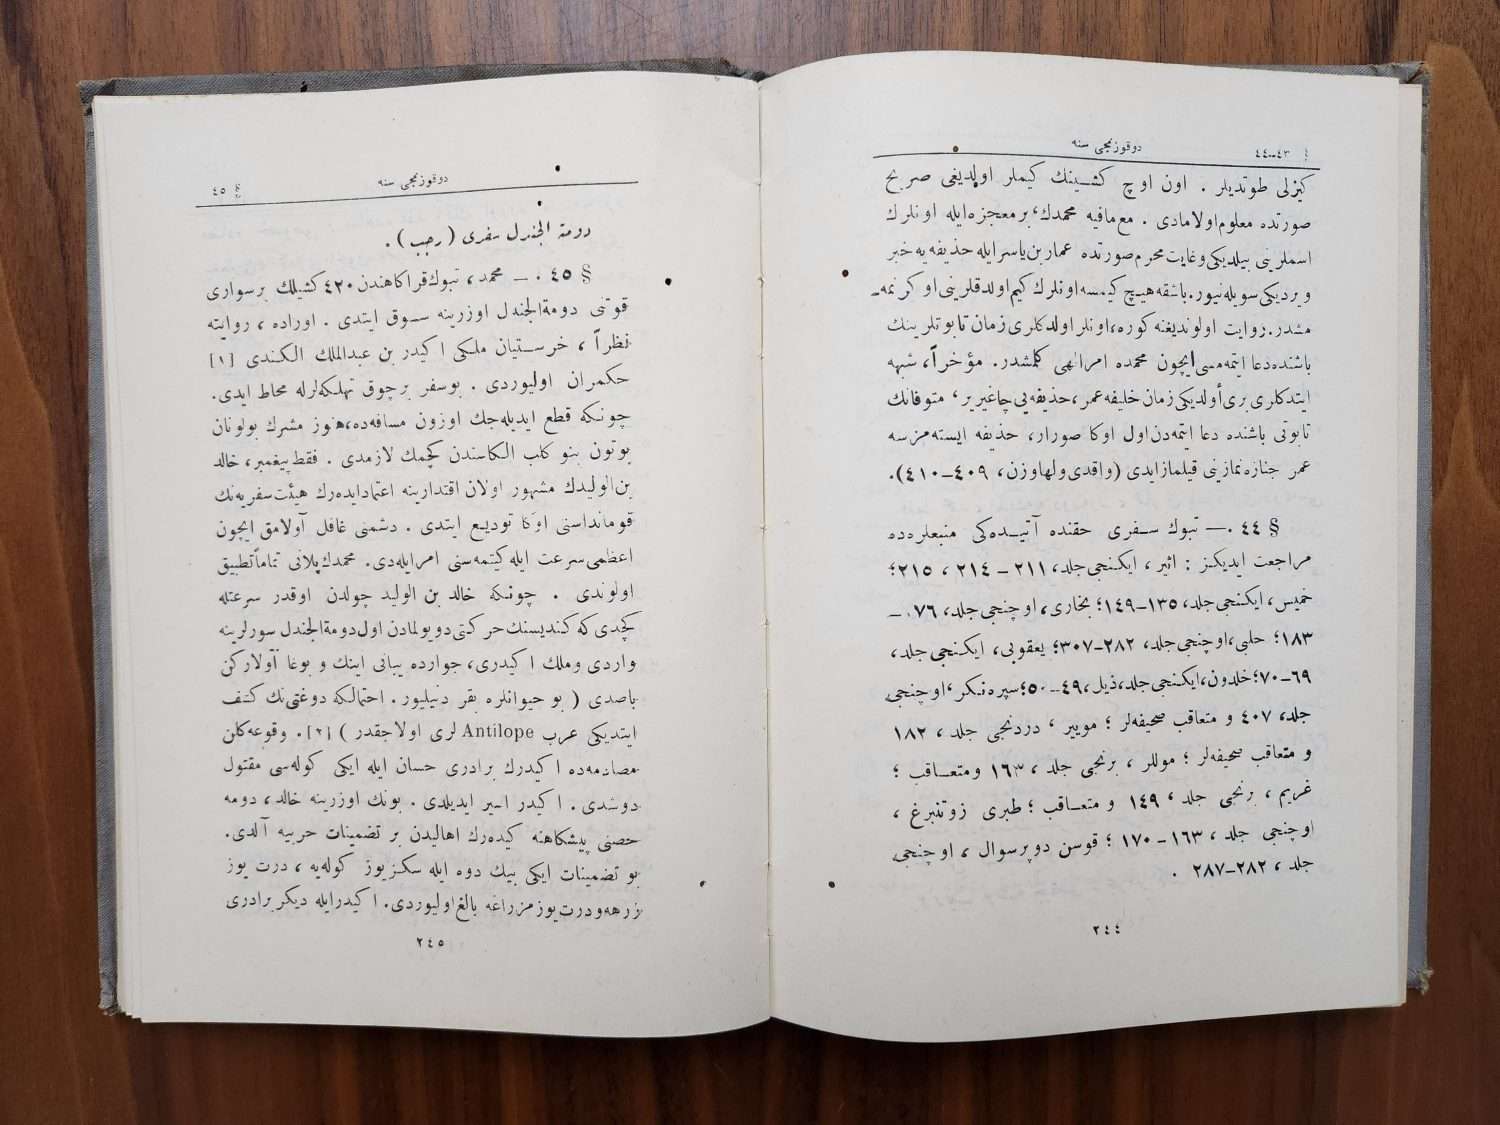 § ٤٣-٤٤
دوقوزنجى سنه
كيزلى طوتديلر . اون اوچ كشينك كيملر اولديغى صريح
صورتده معلوم اولامادى . مع مافيه محمدك، بر معجزه ايله اونلرك
اسملرينى بيلديكى وغايت محرم صورتده عمار بن ياسر ايله حذيفه يه خبر
ويرديكى سويله نيور. باشقه هيچ كيمسه اونلرك كيم اولدقلرينى اوكرنمه-
مشدر. روايت اولونديغنه كوره، اونلر اولدكلرى زمان تابوتلرينك
باشنده دعا ايتمه مسى ايچون محمده امر الهى كلمشدر. مؤخراً، شبهه
ايتدكلرى برى أولديكى زمان خليفه عمر، حذيفه يى چاغيرير، متوفانك
تابوتى باشنده دعا ايتمه دن اول اوكا صورار، حذيفه ايسته مزسه
عمر جنازه نمازينى قيلمازايدى (واقدى ولهاوزن، ٤٠٩-٤١٠).
§ ٤٤ .— تبوك سفرى حقنده آتيده كى منبعلره ده
مراجعت ايديكز : اثير ، ايكنجى جلد، ٢١١ - ٢١٤ ، ٢١٥؛
خميس، ايكنجى جلد، ١٣٥-١٤٩؛ بخارى، اوچنجى جلد، ٧٦ -
١٨٣؛ حلبى، اوچنجى جلد، ٢٨٢-٣٠٧؛ يعقوبى، ايكنجى جلد،
٦٩-٧٠؛ خلدون، ايكنجى جلد، ذيل، ٤٩-٥٠؛ سپره نكر، اوچنجى
جلد، ٤٠٧ و متعاقب صحيفه لر ؛ موبير ، دردنجى جلد ، ١٨٢
و متعاقب صحيفه لر ؛ موللر ، برنجى جلد ، ١٦٣ ومتعاقب ؛
غريم ، برنجى جلد ، ١٤٩ و متعاقب ؛ طبرى زوتنبرغ ،
اوچنجى جلد ، ١٦٣-١٧٠ ؛ قوسن دوپرسوال ، اوچنجى
جلد ، ٢٨٢-٢٨٧ .
٢٤٤
دوقوزنجى سنه
§ ٤٥
دومة الجندل سفرى (رجب) .
§ ٤٥ . — محمد، تبوك قراركاهندن ٤٢٠ كشيلك بر سوارى
قوتنى دومة الجندل اوزرينه سوق ايتدى . اوراده ، روايته
نظراً ، خرستيان ملكى اكيدر بن عبدالملك الكندى [١]
حكمران اوليوردى . بوسفر برچوق تهلكه لرله محاط ايدى.
چونكه قطع ايديله جك اوزون مسافه ده، هنوز مشرك بولونان
بوتون بنو كلب الكاسندن كچمك لازمدى . فقط پيغمبر، خالد
بن الوليدك مشهور اولان اقتدارينه اعتماد ايده رك هيئت سفريه نك
قومانداسنى اوكا توديع ايتدى . دشمنى غافل آولامق ايچون
اعظمى سرعت ايله كيتمه سنى امر ايله دى. محمدك پلانى تماماً تطبيق
اولوندى . چونكه خالد بن الوليد چولدن اوقدر سرعتله
كچدى كه كنديسنك حركتى دويولمادن اول دومة الجندل سورلرينه
واردى وملك اكيدرى، جوارده يبانى اينك و بوغا آولاركن
باصدى ( بو حيوانلره بقر دنيليور. احتمالكه دوغتى نك كشف
ايتديكى عرب Antilope لرى اولاجقدر ) [٢]. وقوعه كلن
مصادمه ده اكيدرك برادرى حسان ايله ايكى كوله سى مقتول
دوشدى . اكيدر اسير ايديلدى . بونك اوزرينه خالد، دومه
حصنى پيشكاهنه كيده رك اهاليدن بر تضمينات حربيه آلدى.
بو تضمينات ايكى بيك دوه ايله سكز يوز كوله يه ، درت يوز
زرهه و درت يوز مزراغه بالغ اوليوردى. اكيدر ايله ديكر برادرى
٢٤٥